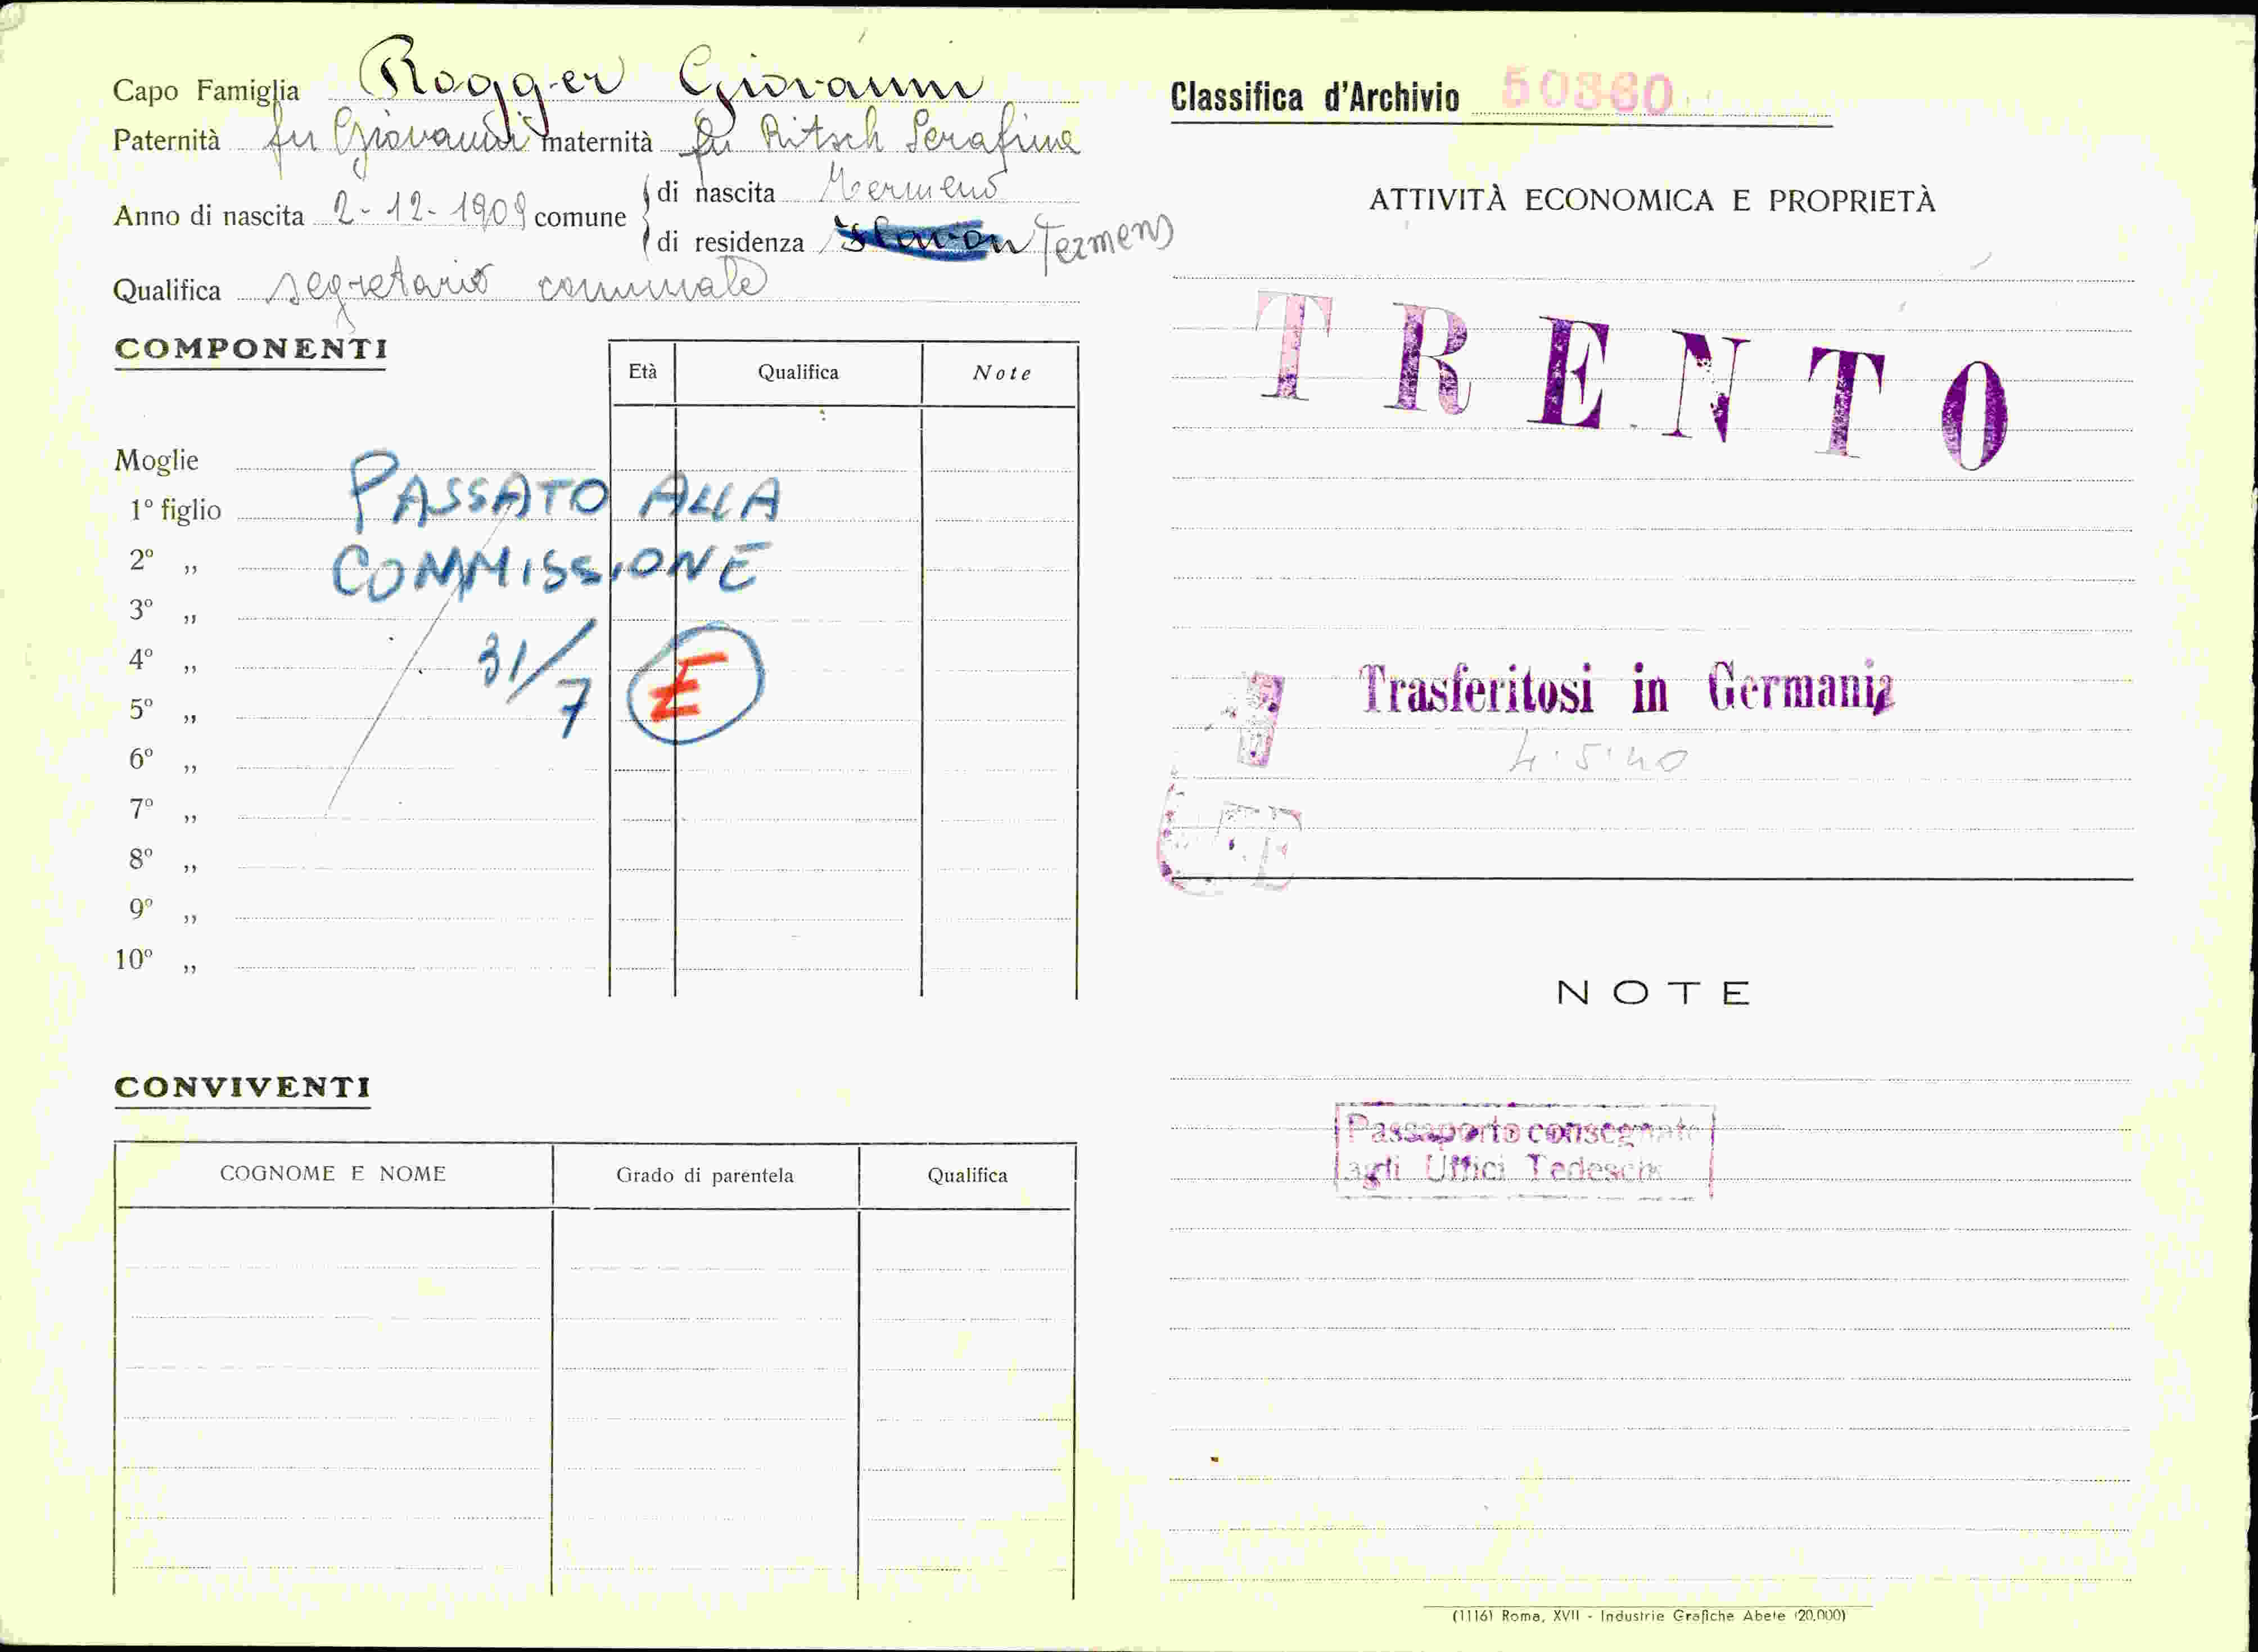 Capo Famiglia Rogger Giovanni
Paternità fu Giovanni maternità fu Ritsch Serafina
Anno di nascita 2-12-1909 comune
di nascita Termeno
di residenza Termeno
Qualifica segretario comunale
COMPONENTI
Età Qualifica Note
Moglie
1º figlio
2º „
3º „
4º „
5º „
6º „
7º „
8º „
9º „
10º „
PASSATO ALLA
COMMISSIONE
31/7 E
CONVIVENTI
COGNOME E NOME Grado di parentela Qualifica
Classifica d'Archivio 50360
ATTIVITÀ ECONOMICA E PROPRIETÀ
TRENTO
Trasferitosi in Germania
4.5.40
NOTE
Passaporto consegnato
agli Uffici Tedeschi
(1116) Roma, XVII - Industrie Grafiche Abete (20.000)